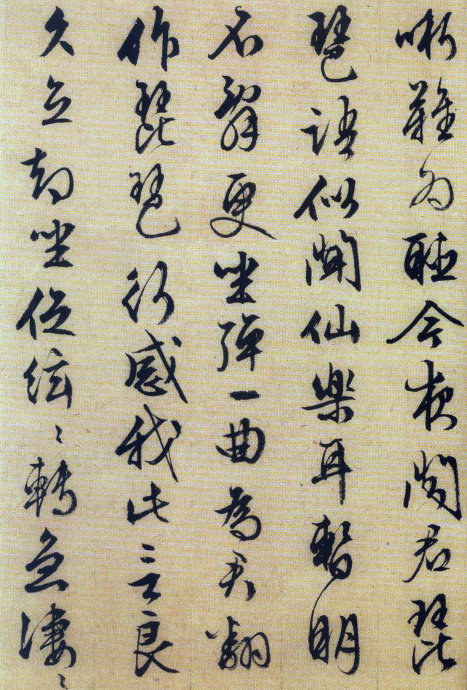 哳難為聽今夜聞君琵
琶語似聞仙樂耳暫明
辭更坐彈一曲為君翻
作琵琶行感我此言良
久立却坐促絃〻轉急淒〻